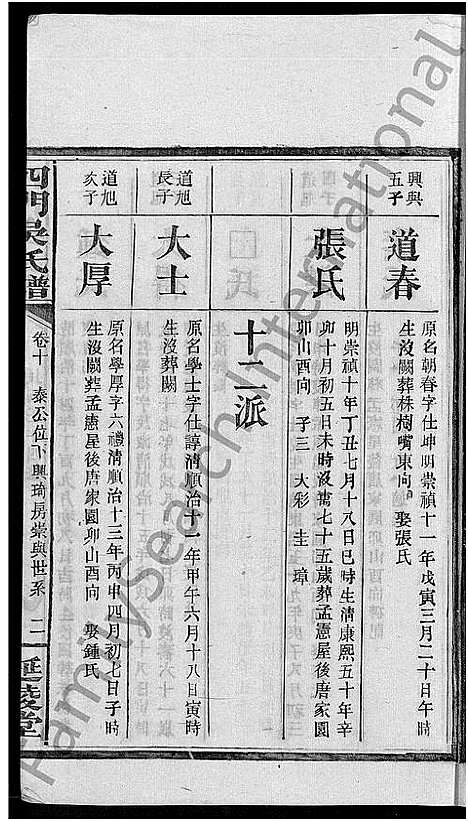 興與
五子
道春
原名朝春字仕坤明崇禎十一年戊寅三月二十日午時
生沒闕葬株樹嘴東向 娶張氏
張氏
明崇禎十年丁丑七月十八日巳時生清康熙五十年辛
卯十月初五日未時沒壽七十五歲葬孟憲屋後唐家園
卯山酉向 子三 大彩 圭 璋
十二派
道旭
長子
大士
原名學士字仕諄清順治十一年甲午六月十八日寅時
生沒葬闕
道旭
次子
大厚
原名學厚字六禮清順治十三年丙申四月初七日子時
生沒闕葬孟憲屋後唐家園卯山酉向 娶鍾氏
四門吳氏譜
卷十 泰公位下興琦房崇與世系 二
延陵堂
FamilySearch International